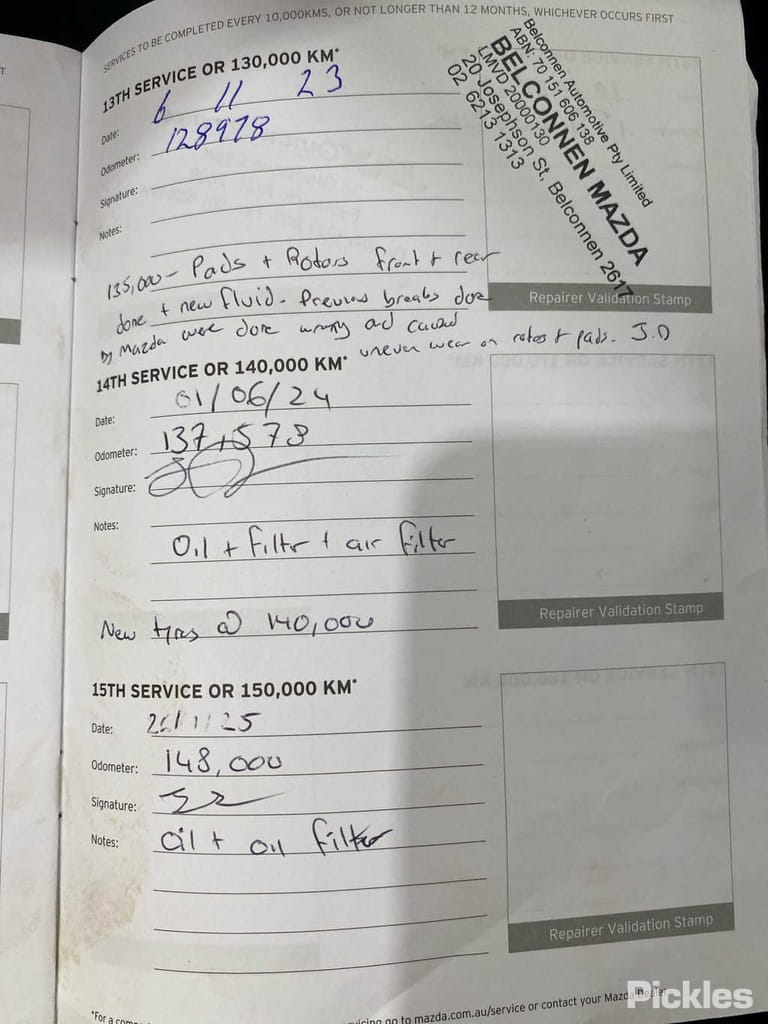 SERVICES TO BE COMPLETED EVERY 10,000KMS, OR NOT LONGER THAN 12 MONTHS, WHICHEVER OCCURS FIRST
T
13TH SERVICE OR 130,000 KM*
Date: 6 11 23
Odometer: 128978
Signature:
Notes:
Belconnen Automotive Pty Limited
ABN: 70 151 606 138
BELCONNEN MAZDA
LMVD 20000130
20 Josephson St, Belconnen 2617
02 6213 1313
Repairer Validation Stamp
135,000 - Pads + Rotors front + rear
done + new fluid - Previous breaks done
by Mazda were done wrong ad caused
uneven wear on rotors + pads. J.D
14TH SERVICE OR 140,000 KM*
Date: 01/06/24
Odometer: 137,578
Signature:
Notes:
Oil + filter + air filter
New tyres @ 140,000
Repairer Validation Stamp
15TH SERVICE OR 150,000 KM*
Date: 26/1/25
Odometer: 148,000
Signature:
Notes: oil + oil filter
Repairer Validation Stamp
*For a
go to mazda.com.au/service or contact your Mazda Dealer
Pickles